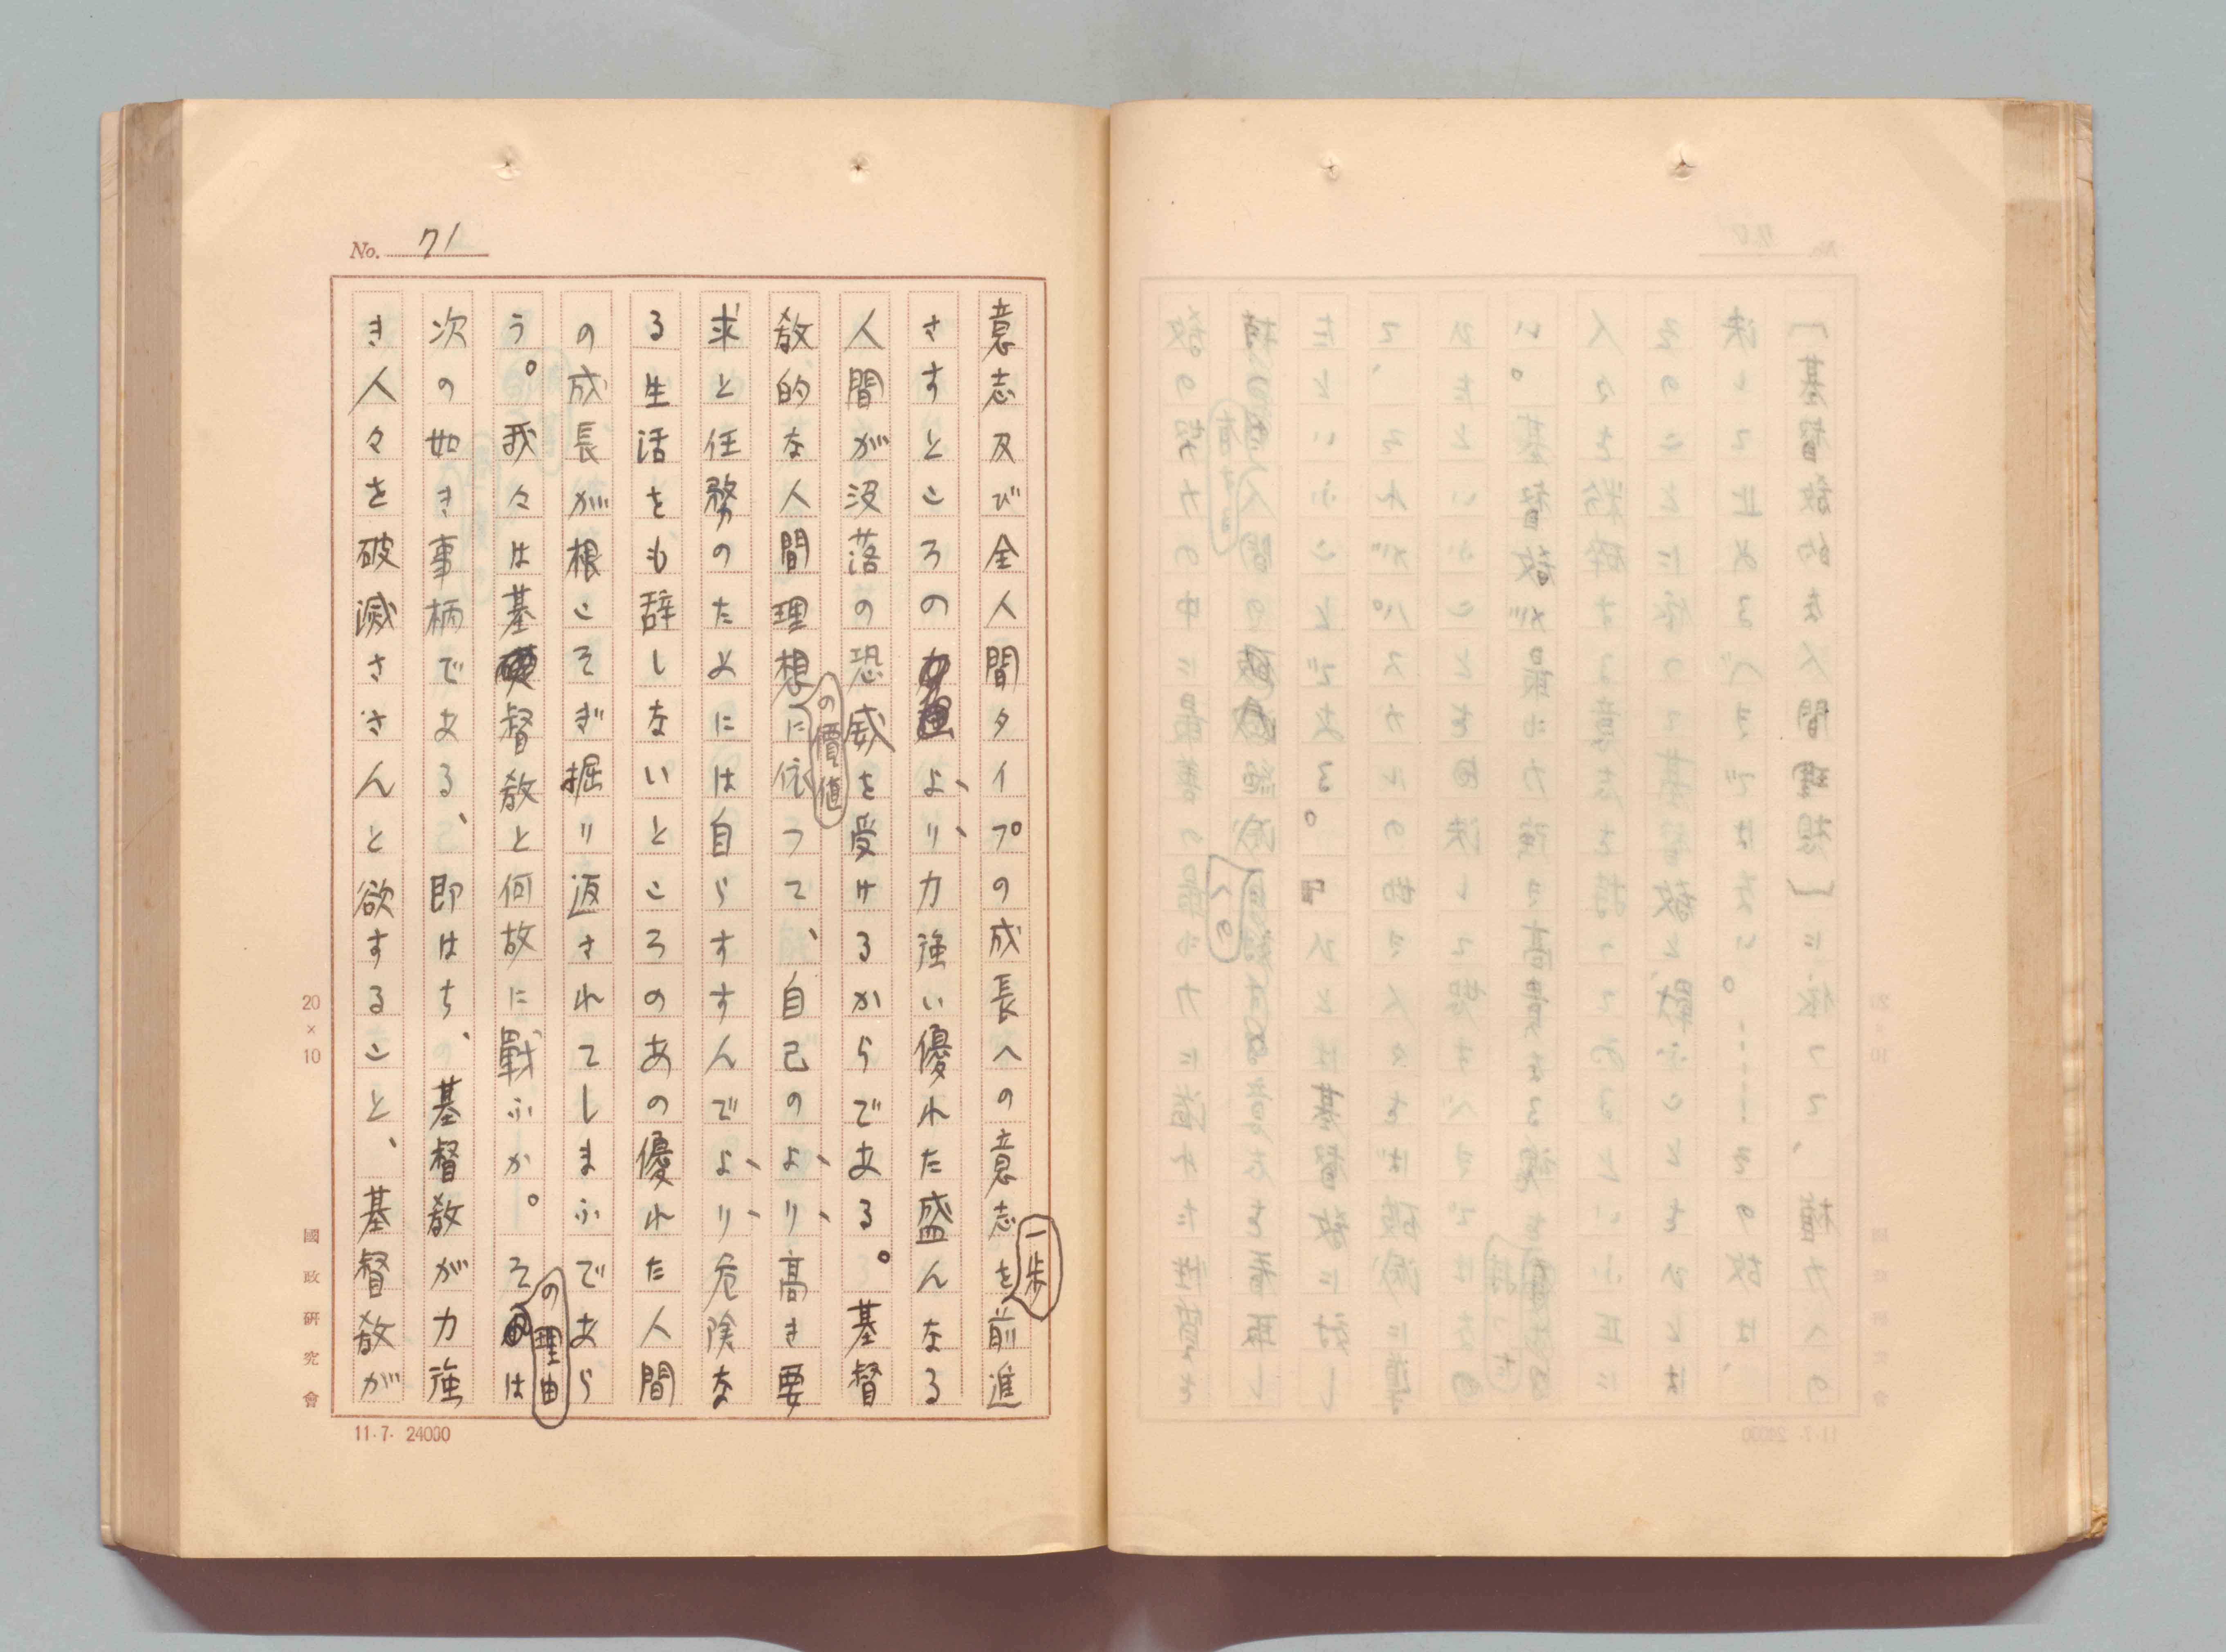 No. 71
意志及び全人間タイプの成長への意志を一歩前進
さすところのより力強い優れた盛んなる
人間が没落の恐威を受けるからである。基督
教的な人間理想の價値に依つて、自己のより高き要
求と任務のためには自らすすんでより危険な
る生活をも辞しないところのあの優れた人間
の成長が根こそぎ掘り返されてしまふであら
う。我々は基督教と何故に戰ふか。その理由は
次の如き事柄である、即はち、基督教が力強
き人々を破滅させんと欲すること、基督教が
20×10
國政研究會
11.7. 24000